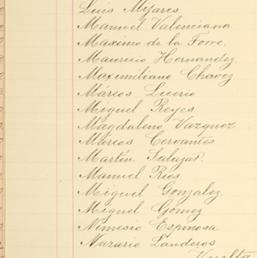 Luis Mijares
Manuel Valenciana
Maximo de la Torre.
Mauricio Hernandez
Maximiliano Chavez
Márcos Lucero
Miguel Reyes.
Magdaleno Vazquez
Márcos Cervantés
Martin Salazar.
Manuel Rios
Miguel Gonzalez
Miguel Gomez
Nimesio Espinosa
Nazario Landeros
Vuelta